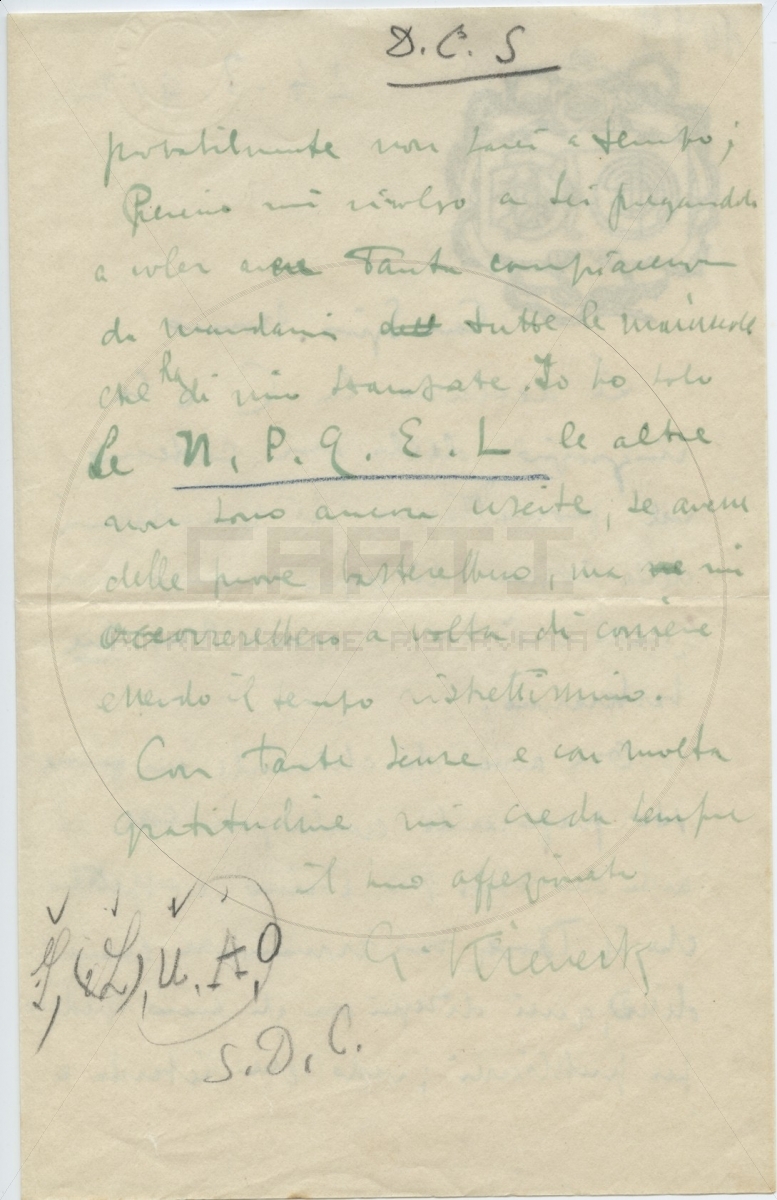 D. C. S
probabilmente non sarei a tempo;
Perciò mi rivolgo a Lei pregandola
a voler avere tanta compiacenza
da mandarmi dell tutte le maiuscole
che ha di mio stampate. Io ho solo
le N. P. Q. E. L le altre
non sono ancora uscite, se avesse
delle prove basterebbero, ma ne mi
occorrerebbero a volta di corriere
essendo il tempo ristrettissimo.
Con tante scuse e con molta
gratitudine mi creda sempre
il suo affezionato
G. Kienerk
I, (E L), U. A, O
S. D. C.
CARTI
RIPRODUZIONE RISERVATA